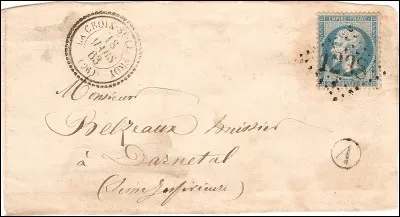 LA CROIX-ST-LEUFROY
18
MARS
63
(26)
EMPIRE FRANC
1228
Monsieur
Belzeaux huissier
à Darnetal
(Seine Inférieure)
1